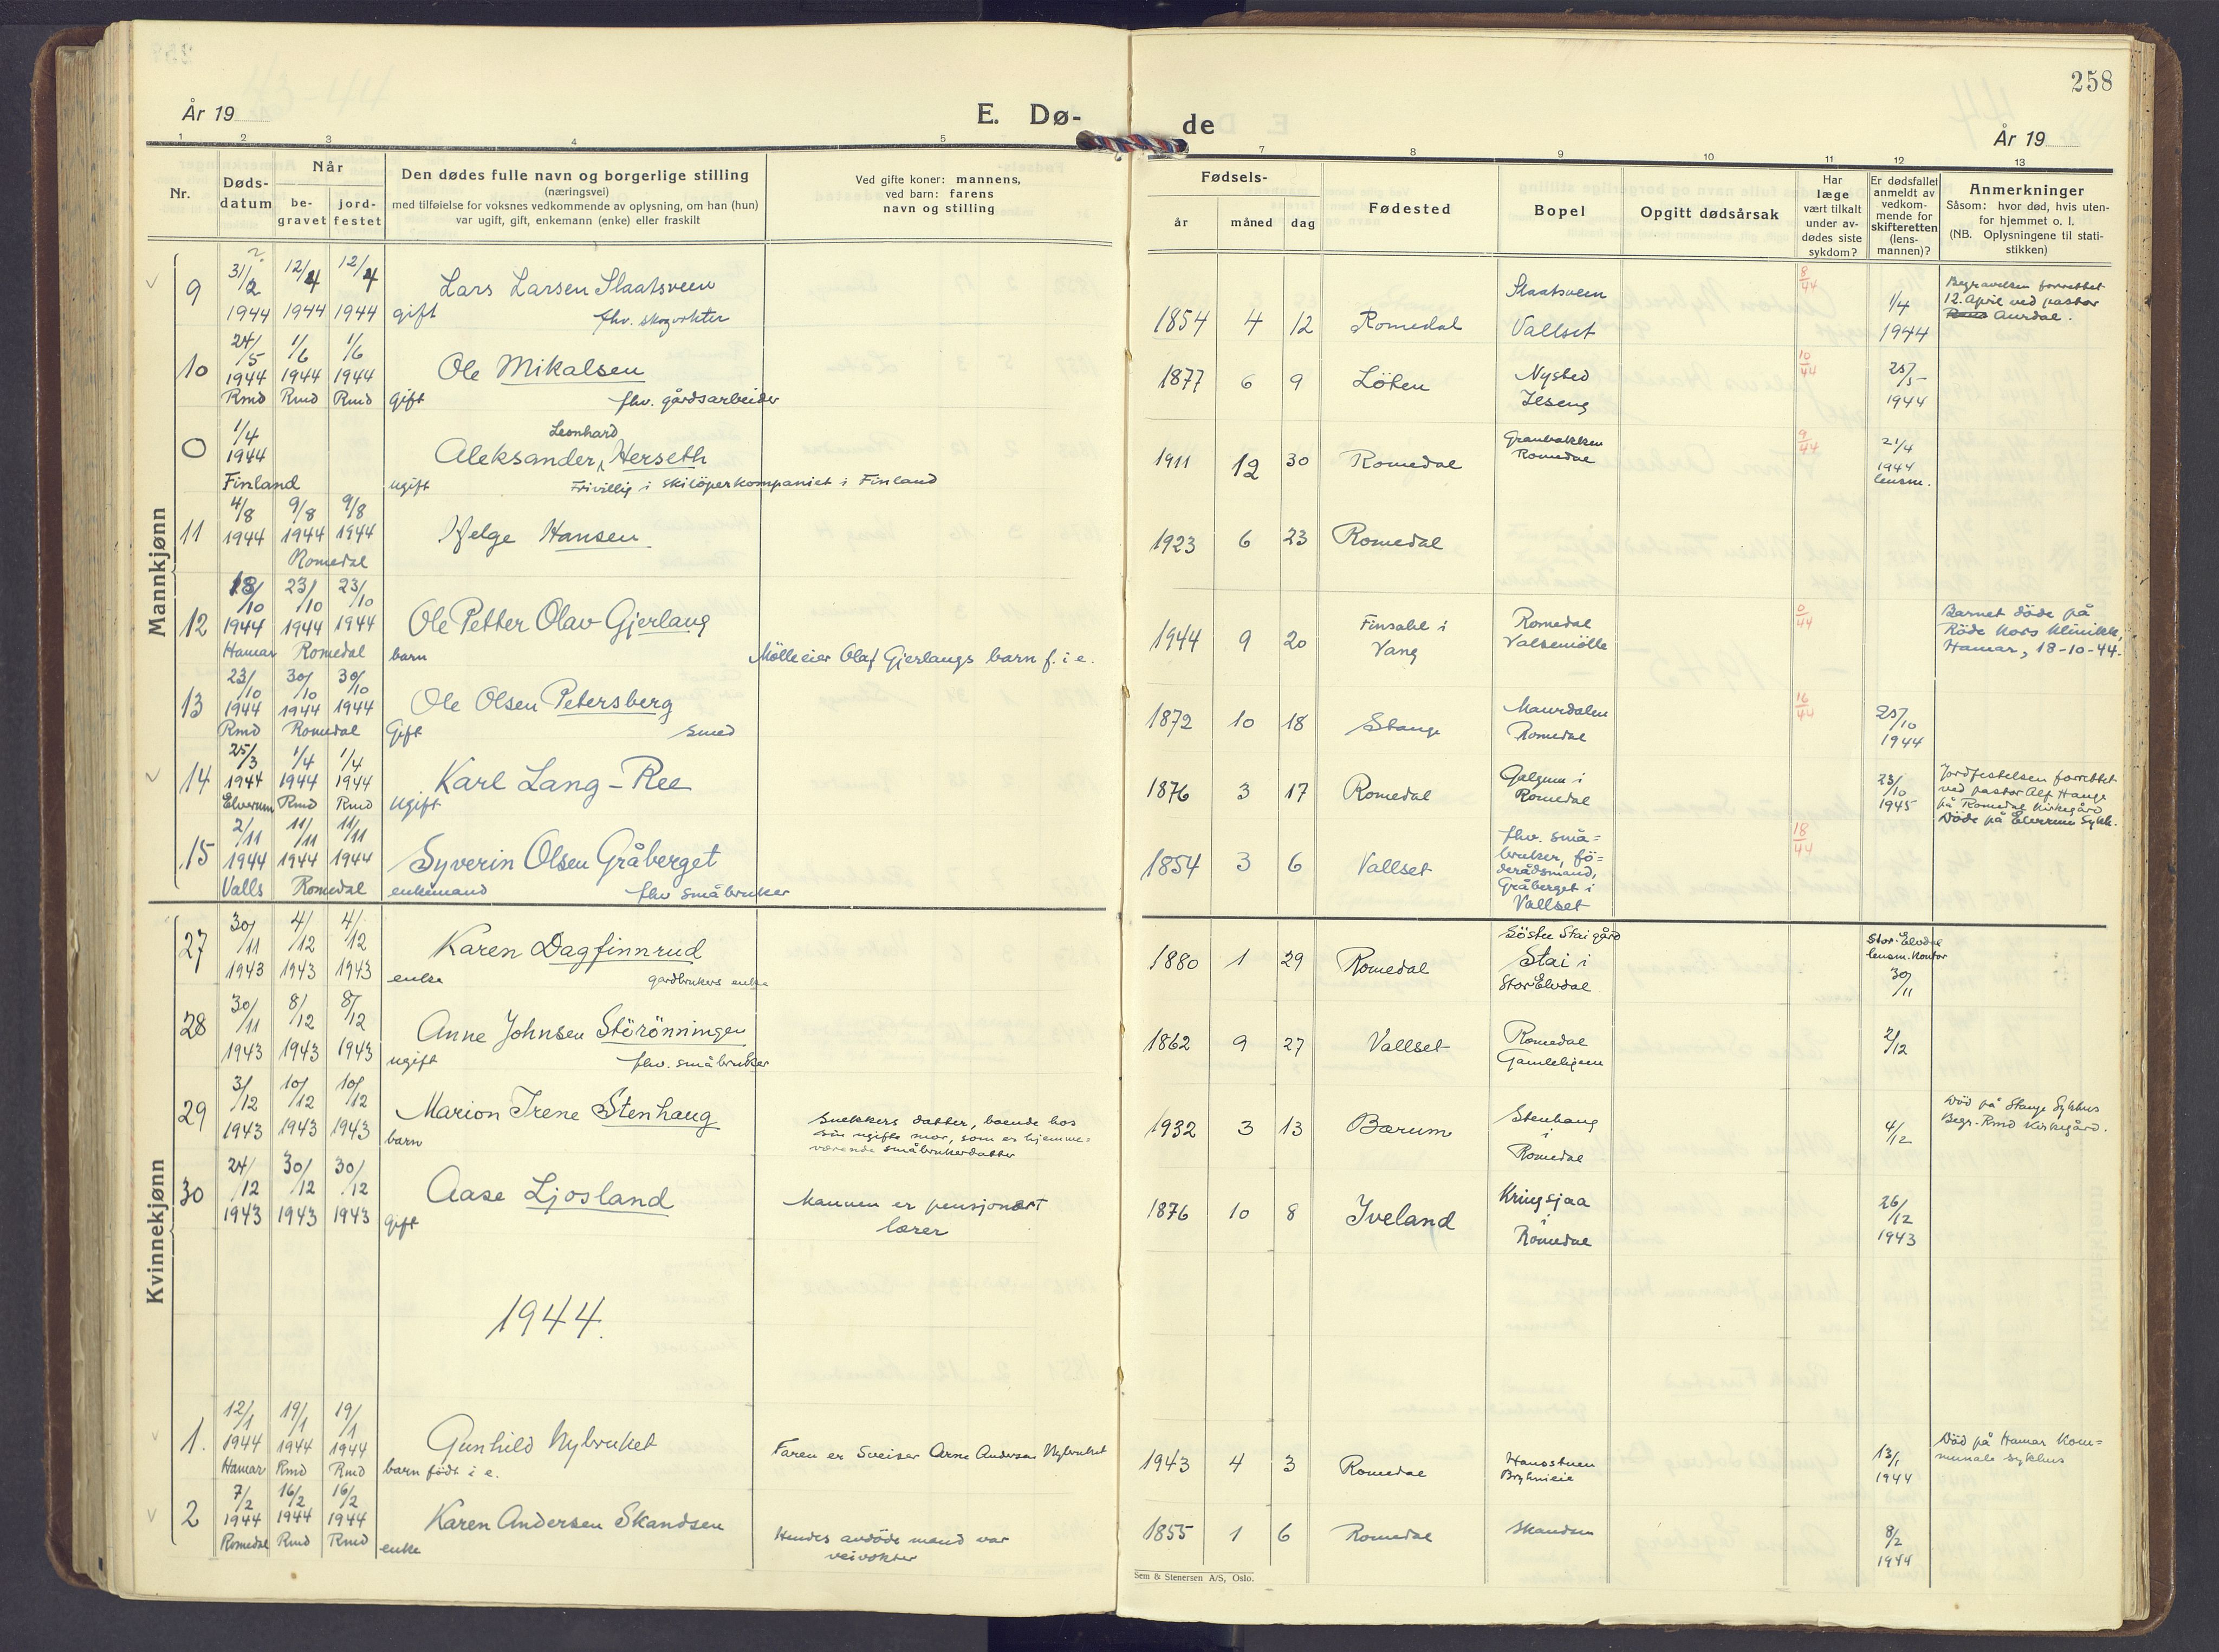 258
År 19
E. Dø-
de
År 19
1 2 3 4 5
7 8 9 10 11 12 13
Nr.
Døds-
datum
Når
be-
gravet
jord-
festet
Den dødes fulle navn og borgerlige stilling
(næringsvei)
med tilføielse for voksnes vedkommende av oplysning, om han (hun)
var ugift, gift, enkemann (enke) eller fraskilt
Ved gifte koner: mannens,
ved barn: farens
navn og stilling
Fødsels-
år måned dag
Fødested
Bopel
Opgitt dødsårsak
Har
læge
vært tilkalt
under av-
dødes siste
sykdom?
Er dødsfallet
anmeldt av
vedkom-
mende for
skifteretten
(lens-
mannen)?
Anmerkninger
Såsom: hvor død, hvis uten-
for hjemmet o. l.
(NB. Oplysningene til stati-
stikken)
Mannkjønn
9 31/2 1944 12/4 1944 12/4 1944
Lars Larsen Slaatsveen
gift fhv. skogvokter
1854 4 12 Romedal
Slaatsveen
Vallset
8/44
1/4
1944
Begravelsen forrettet
12. April ved pastor
Aurdal.
10 24/5 1944 Rmd 1/6 1944 Rmd 1/6 1944 Rmd
Ole Mikalsen
gift fhv. gårdsarbeider
1877 6 9 Löten
Nysted
Ilseng
10/44
25/5
1944
0 1/4 1944 Finland
Leonhard
Aleksander Herseth
ugift Frivillig i skilöperkompaniet i Finland
1911 12 30 Romedal
Granbakken
Romedal
9/44
21/4
1944
lensm.
11 4/8 1944 9/8 1944 9/8 1944
Romedal
Helge Hansen
1923 6 23 Romedal
12 18/10 1944 23/10 1944 23/10 1944
Hamar Romedal
Ole Petter Olav Gjerlaug
barn Mölleeier Olaf Gjerlaugs barn f. i e.
1944 9 20
Finsahl i
Vang
Romedal
Valsemölle
0/44
Barnet döde på
Röde Kors Klinikk,
Hamar, 18-10-44.
13 23/10 1944 30/10 1944 30/10 1944
Rmd Romedal
Ole Olsen Petersberg
Gift smed
1872 10 18 Stange
Maurdalen
Romedal
16/44
25/10
1944
14 25/3 1944 1/4 1944 1/4 1944
Elverum Rmd Rmd
Karl Lang-Ree
ugift
1876 3 17 Romedal
Romedal
23/10
1945
Jordfestelsen forrettet
ved pastor Alf Hauge
på Romedal Kirkegård
Döde på Elverum Sykh.
15 2/11 1944 11/11 1944 11/11 1944
Valls Romedal
Syverin Olsen Gråberget
enkemand fhv småbruker
1854 3 6 Vallset
fhv. små=
bruker, fö=
derådsmand,
Gråberget i
Vallset
18/44
Kvinnekjønn
27 30/11 1943 4/12 1943 4/12 1943
Karen Dagfinnrud
enke gardbrukers enke
1880 1 29 Romedal
Söstu Staigård
Stai i
Stor Elvdal
Stor-Elvdal
lensm. Kontor
30/11
28 30/11 1943 8/12 1943 8/12 1943
Anne Johnsen Störönningen
ugift fhv. småbruker
1862 9 27 Vallset
Romedal
Gamlehjem
2/12
29 3/12 1943 10/12 1943 10/12 1943
Marion Irene Stenhaug
barn
Snekkers datter, boende hos
sin ugifte mor, som er hjemme=
værende småbrukerdatter
1932 3 13 Bærum
Stenhaug
i
Romedal
4/12
Död på Stange Sykhus
Begr. Rmd Kirkegård.
30 24/12 1943 30/12 1943 30/12 1943
Aase Ljosland
gift
Mannen er pensjonert
lærer
1876 10 8 Iveland
Kringsjaa
i
Romedal
26/12
1943
1944.
1. 12/1 1944 19/1 1944 19/1 1944
Hamar Rmd Rmd
Gunhild Nybruket
barn födt i e.
Faren er Sveiser Arne Andersen Nybruket
1943 4 3 Romedal
13/1
1944
Död på Hamar Kom=
munale sykhus
2 7/2 1944 16/2 1944 16/2 1944
Romedal Rmd Rmd
Karen Andersen Skandsen
enke
Hendes avdöde mand var
veivokter
1855 1 6 Romedal
Skandsen
8/2
1944
Sem & Stenersen A/S, Oslo.